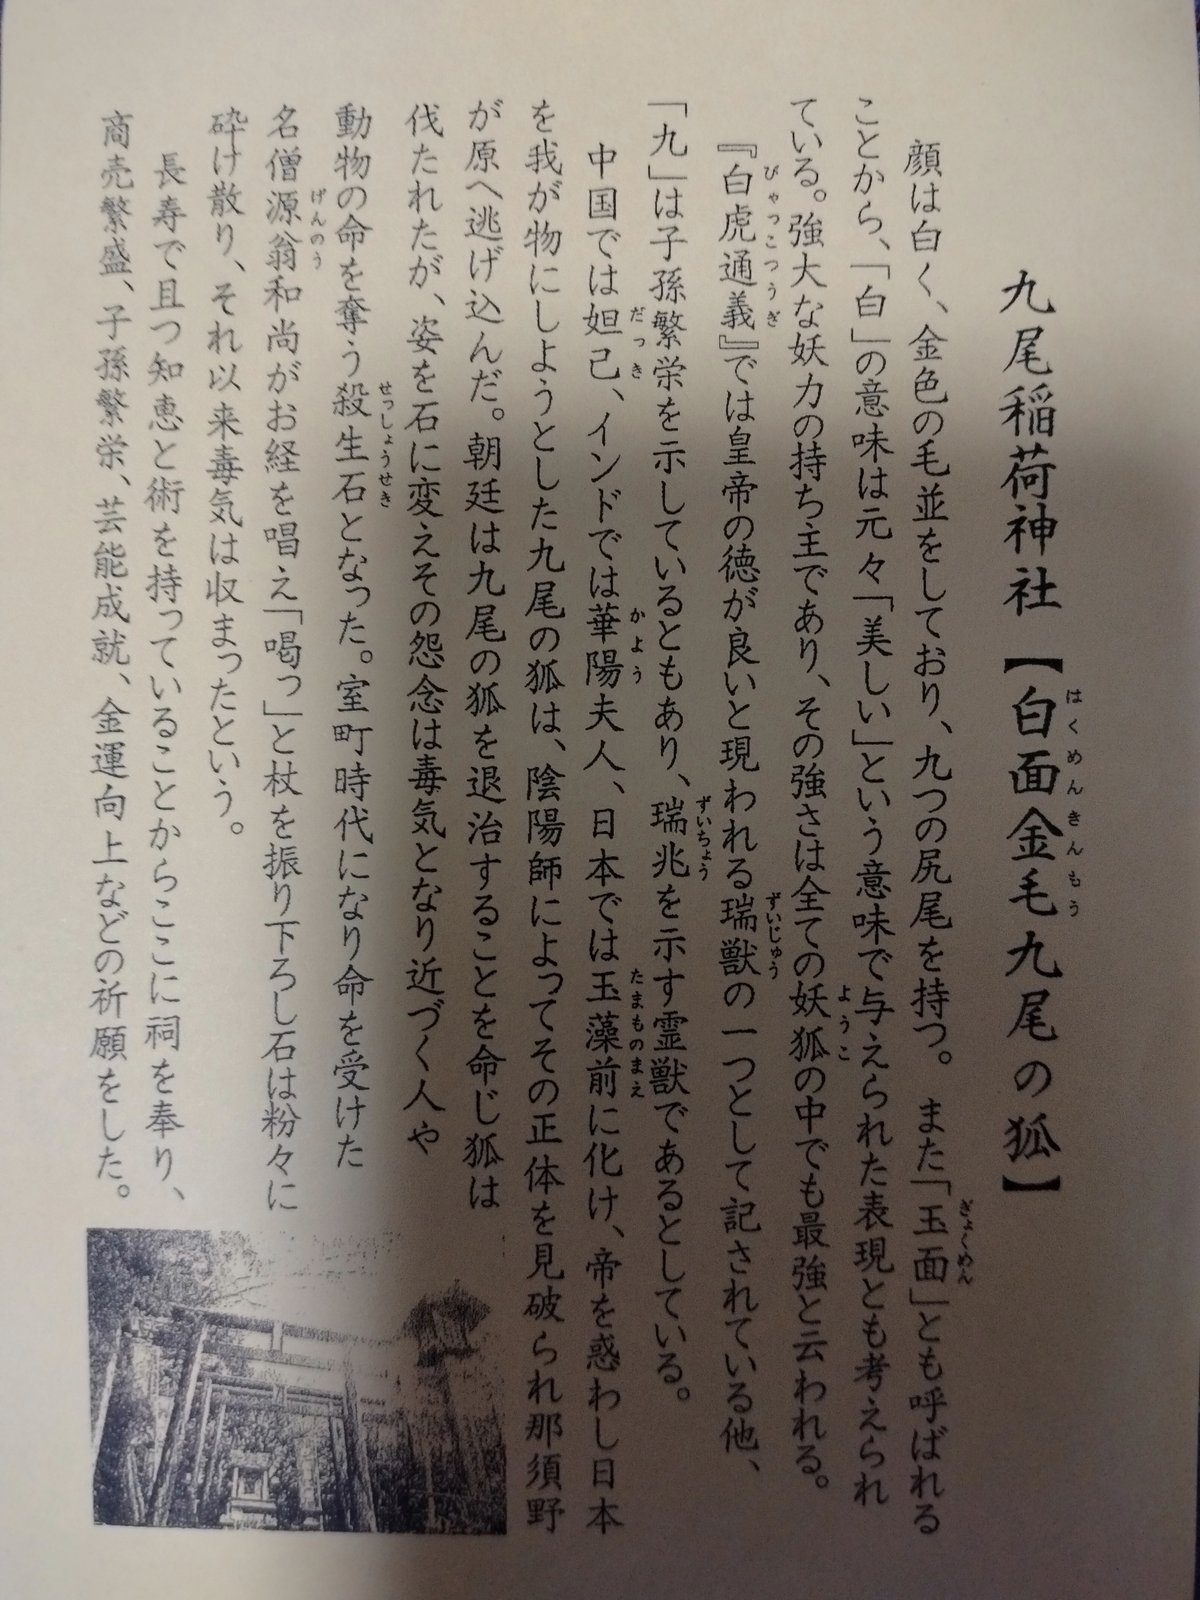 九尾稲荷神社【白面金毛九尾の狐】
はくめんきんもう
顔は白く、金色の毛並をしており、九つの尻尾を持つ。また「玉面」とも呼ばれる
ぎょくめん
ことから、「白」の意味は元々「美しい」という意味で与えられた表現とも考えられ
ている。強大な妖力の持ち主であり、その強さは全ての妖狐の中でも最強と云われる。
ようこ
『白虎通義』では皇帝の徳が良いと現われる瑞獣の一つとして記されている他、
びゃっこつうぎ
ずいじゅう
「九」は子孫繁栄を示しているともあり、瑞兆を示す霊獣であるとしている。
ずいちょう
中国では妲己、インドでは華陽夫人、日本では玉藻前に化け、帝を惑わし日本
だっき
かよう
たまものまえ
を我が物にしようとした九尾の狐は、陰陽師によってその正体を見破られ那須野
が原へ逃げ込んだ。朝廷は九尾の狐を退治することを命じ狐は
伐たれたが、姿を石に変えその怨念は毒気となり近づく人や
動物の命を奪う殺生石となった。室町時代になり命を受けた
せっしょうせき
名僧源翁和尚がお経を唱え「喝っ」と杖を振り下ろし石は粉々に
げんのう
砕け散り、それ以来毒気は収まったという。
長寿で且つ知恵と術を持っていることからここに祠を奉り、
商売繁盛、子孫繁栄、芸能成就、金運向上などの祈願をした。